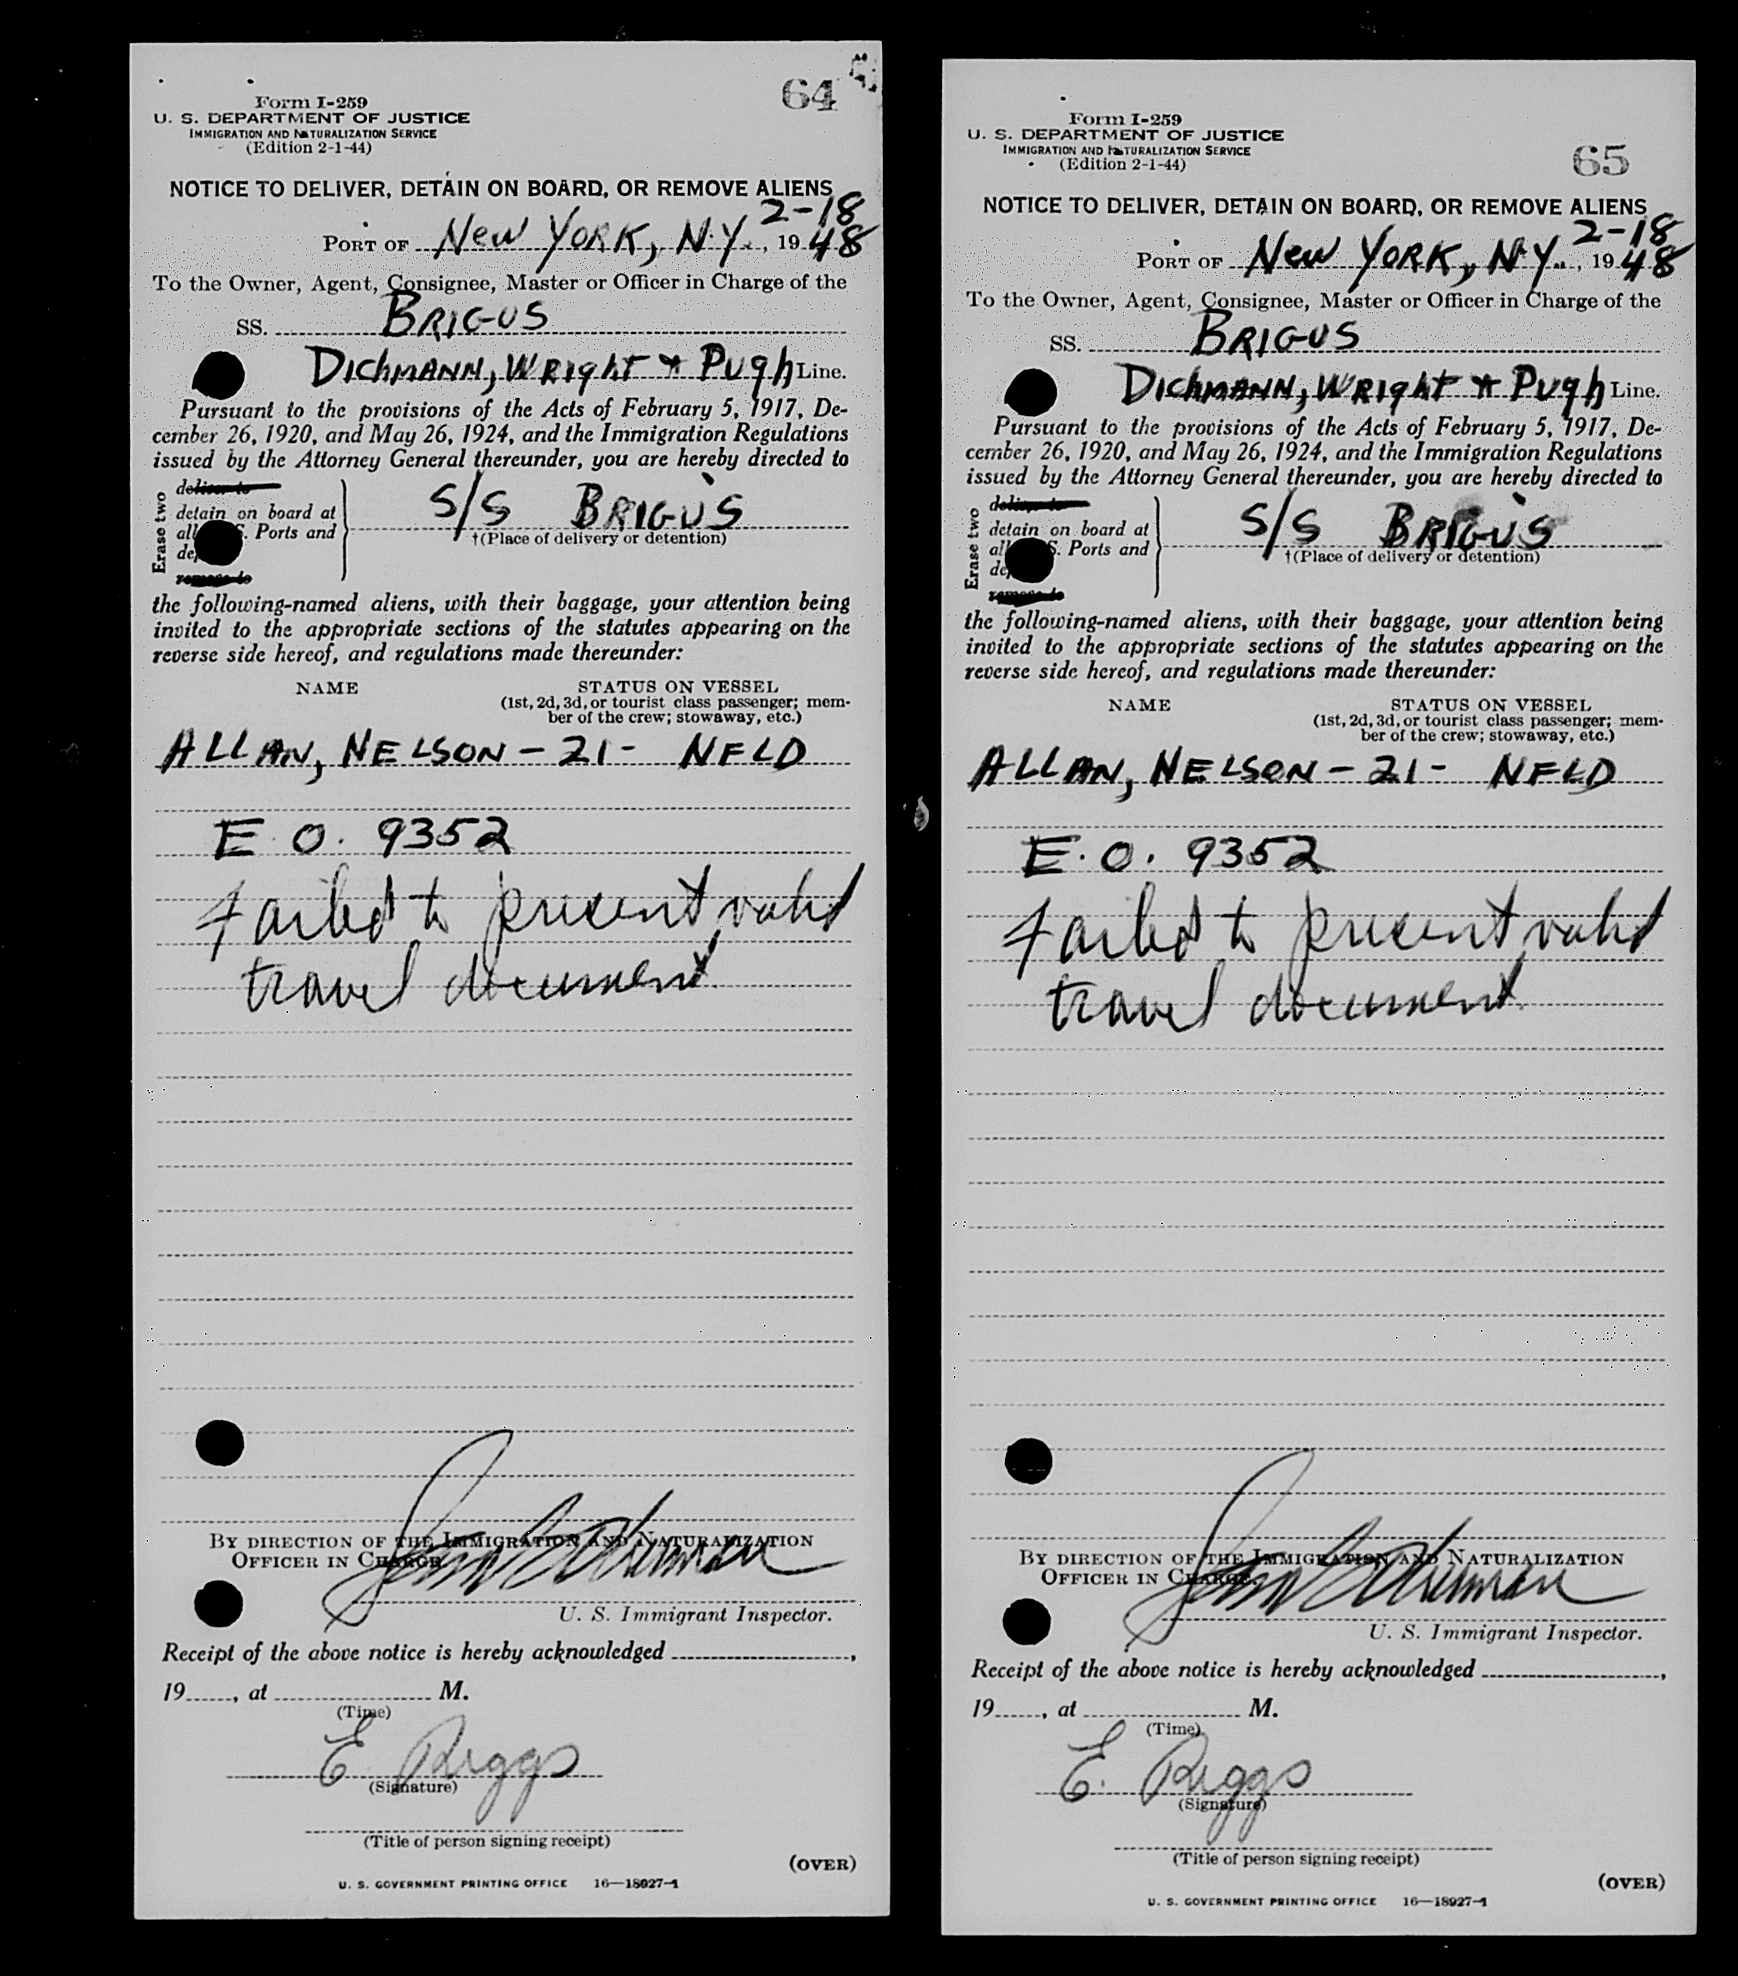 64
Form I-259
U. S. DEPARTMENT OF JUSTICE
IMMIGRATION AND NATURALIZATION SERVICE
(Edition 2-1-44)
NOTICE TO DELIVER, DETAIN ON BOARD, OR REMOVE ALIENS
2-18
PORT OF New York, N.Y., 1948
To the Owner, Agent, Consignee, Master or Officer in Charge of the
SS. BRIGUS
DICHMANN, WRIGHT & PUGH Line.
Pursuant to the provisions of the Acts of February 5, 1917, De-
cember 26, 1920, and May 26, 1924, and the Immigration Regulations
issued by the Attorney General thereunder, you are hereby directed to
Erase two
deliver to
detain on board at
all S. Ports and
remove to
S/S BRIGUS
†(Place of delivery or detention)
the following-named aliens, with their baggage, your attention being
invited to the appropriate sections of the statutes appearing on the
reverse side hereof, and regulations made thereunder:
NAME STATUS ON VESSEL
(1st, 2d, 3d, or tourist class passenger; mem-
ber of the crew; stowaway, etc.)
ALLAN, NELSON - 21 - NFLD
E.O. 9352
Failed to present valid
travel document.
BY DIRECTION OF THE IMMIGRATION AND NATURALIZATION
OFFICER IN CHARGE.
U. S. Immigrant Inspector.
Receipt of the above notice is hereby acknowledged ,
19 , at M.
(Time)
E. Riggs
(Signature)
(Title of person signing receipt)
(OVER)
U. S. GOVERNMENT PRINTING OFFICE 16—18927-1
65
Form I-259
U. S. DEPARTMENT OF JUSTICE
IMMIGRATION AND NATURALIZATION SERVICE
(Edition 2-1-44)
NOTICE TO DELIVER, DETAIN ON BOARD, OR REMOVE ALIENS
2-18
PORT OF New York, N.Y., 1948
To the Owner, Agent, Consignee, Master or Officer in Charge of the
SS. BRIGUS
DICHMANN, WRIGHT & PUGH Line.
Pursuant to the provisions of the Acts of February 5, 1917, De-
cember 26, 1920, and May 26, 1924, and the Immigration Regulations
issued by the Attorney General thereunder, you are hereby directed to
Erase two
deliver to
detain on board at
all S. Ports and
remove to
S/S BRIGUS
†(Place of delivery or detention)
the following-named aliens, with their baggage, your attention being
invited to the appropriate sections of the statutes appearing on the
reverse side hereof, and regulations made thereunder:
NAME STATUS ON VESSEL
(1st, 2d, 3d, or tourist class passenger; mem-
ber of the crew; stowaway, etc.)
ALLAN, NELSON - 21 - NFLD
E.O. 9352
Failed to present valid
travel document.
BY DIRECTION OF THE IMMIGRATION AND NATURALIZATION
OFFICER IN CHARGE.
U. S. Immigrant Inspector.
Receipt of the above notice is hereby acknowledged ,
19 , at M.
(Time)
E. Riggs
(Signature)
(Title of person signing receipt)
(OVER)
U. S. GOVERNMENT PRINTING OFFICE 16—18927-1